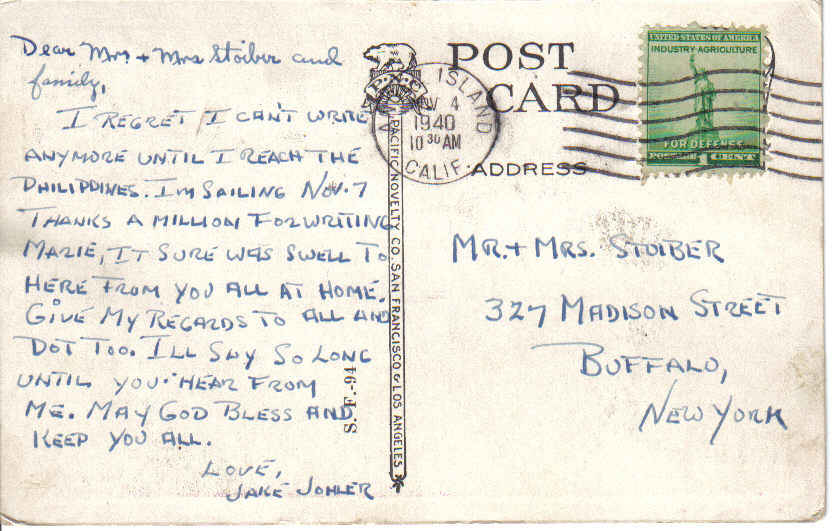 Dear Mr + Mrs Stoiber and
family,
I REGRET I CAN'T WRITE
ANYMORE UNTIL I REACH THE
PHILIPPINES. I'M SAILING NOV. 7
THANKS A MILLION FOR WRITING
MARIE, IT SURE WAS SWELL TO
HERE FROM YOU ALL AT HOME.
GIVE MY REGARDS TO ALL AND
DOT TOO. I'LL SAY SO LONG
UNTIL YOU HEAR FROM
ME. MAY GOD BLESS AND
KEEP YOU ALL.
LOVE,
JAKE JOHLER
P.N.C.
PACIFIC NOVELTY CO. SAN FRANCISCO & LOS ANGELES
S. F.-94
POST
CARD
ADDRESS
ISLAND
NOV 4
1940
10 30 AM
CALIF.
UNITED STATES OF AMERICA
INDUSTRY·AGRICULTURE
FOR DEFENSE
POSTAGE 1 CENT
MR. + MRS. STOIBER
327 MADISON STREET
BUFFALO,
NEW YORK